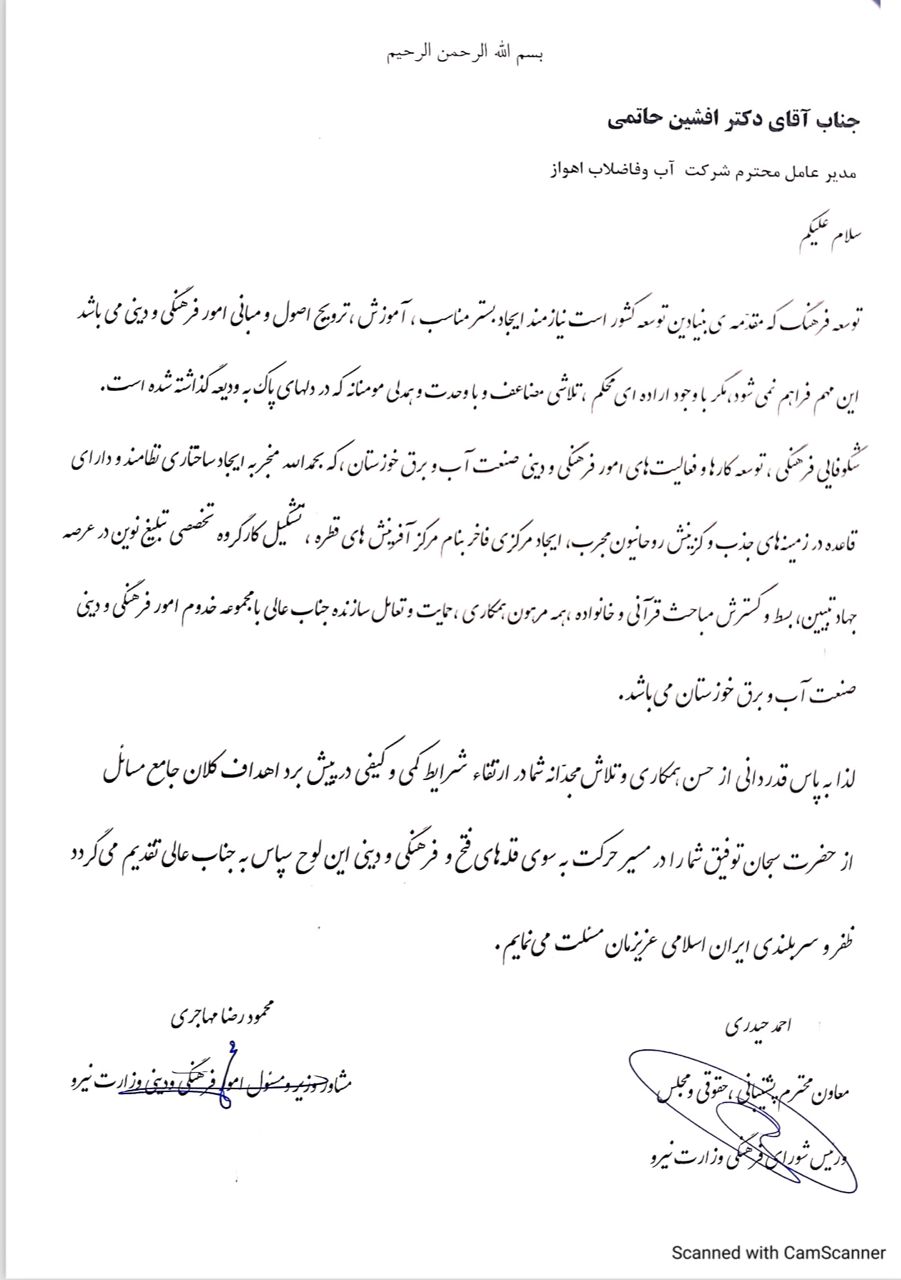 بسم الله الرحمن الرحیم
جناب آقای دکتر افشین حاتمی
مدیر عامل محترم شرکت آب وفاضلاب اهواز
سلام علیکم
توسعه فرهنگ که مقدّمه ی بنیادین توسعه کشور است نیازمند ایجاد بستر مناسب ، آموزش ، ترویج اصول و مبانی امور فرهنگی و دینی می باشد
این مهم فراهم نمی شود ،مگر با وجود اراده ای محکم ، تلاشی مضاعف و با وحدت و همدلی مومنانه که در دلهای پاک به ودیعه گذاشته شده است.
شکوفایی فرهنگی ، توسعه کارها و فعالیت‌های امور فرهنگی و دینی صنعت آب و برق خوزستان ،که بحمدالله منجر به ایجاد ساختاری نظامند و دارای
قاعده در زمینه‌های جذب و گزینش روحانیون مجرب، ایجاد مرکزی فاخر بنام مرکز آفرینش های قطره ، تشکیل کارگروه تخصصی تبلیغ نوین در عرصه
جهاد تبیین، بسط و گسترش مباحث قرآنی و خانواده ،همه مرهون همکاری ، حمایت و تعامل سازنده جناب عالی با مجموعه خدوم امور فرهنگی و دینی
صنعت آب و برق خوزستان می باشد.
لذا به پاس قدردانی از حسن همکاری و تلاش مجدّانه شما در ارتقاء شرایط کمی و کیفی در پیش برد اهداف کلان جامع مسائل
از حضرت سبحان توفیق شما را در مسیر حرکت به سوی قله‌های فتح و فرهنگی و دینی این لوح سپاس به جناب عالی تقدیم می گردد
ظفر و سربلندی ایران اسلامی عزیزمان مسئلت می نمایم.
احمد حیدری
معاون محترم پشتیبانی ،حقوقی و مجلس
ورئیس شورای فرهنگی وزارت نیرو
محمود رضا مهاجری
مشاور وزیر و مسئول امور فرهنگی و دینی وزارت نیرو
Scanned with CamScanner